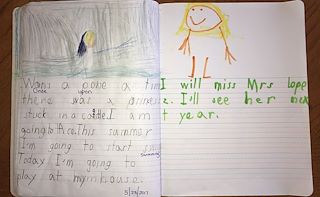 Wans a pone a tim
Once upon
there was a prinese
stuck in a catle. I am
going to Arce. This summer
I'm going to start
swimming
Today I'm going to
play at my house.
5/23/2017
I will miss Mrs lope
I'll see her nex
t year.